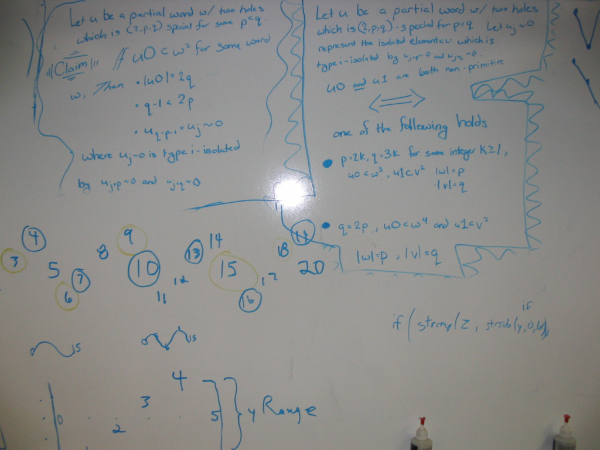 Let u be a partial word w/ two holes
which is (2,p,q) special for some p<q.
"Claim" If u0 ⊂ w² for some word
w, Then • |u0| = 2q
• q-1 < 2p
• u q-p-1 = uj ~ 0
where uj~0 is type i-isolated
by uj+p=0 and uj-q=0
Let u be a partial word w/ two holes
which is (2,p,q)-special for p<q. Let uj~0
represent the isolated element which is
type i-isolated by
u0 and u1 are both non-primitive
⟺
one of the following holds
• p=2k, q=3k for some integer k≥1,
u0⊂w³, u1⊂v² |w|=p
|v|=q
• q=2p, u0⊂w⁴ and u1⊂v²
|w|=p, |v|=q
3 4 5 6 7 8 9 10 11 12 13 14 15 16 17 18 20
if
if (strcmp(z,
5 5
4
3
2
0
5 } y Range